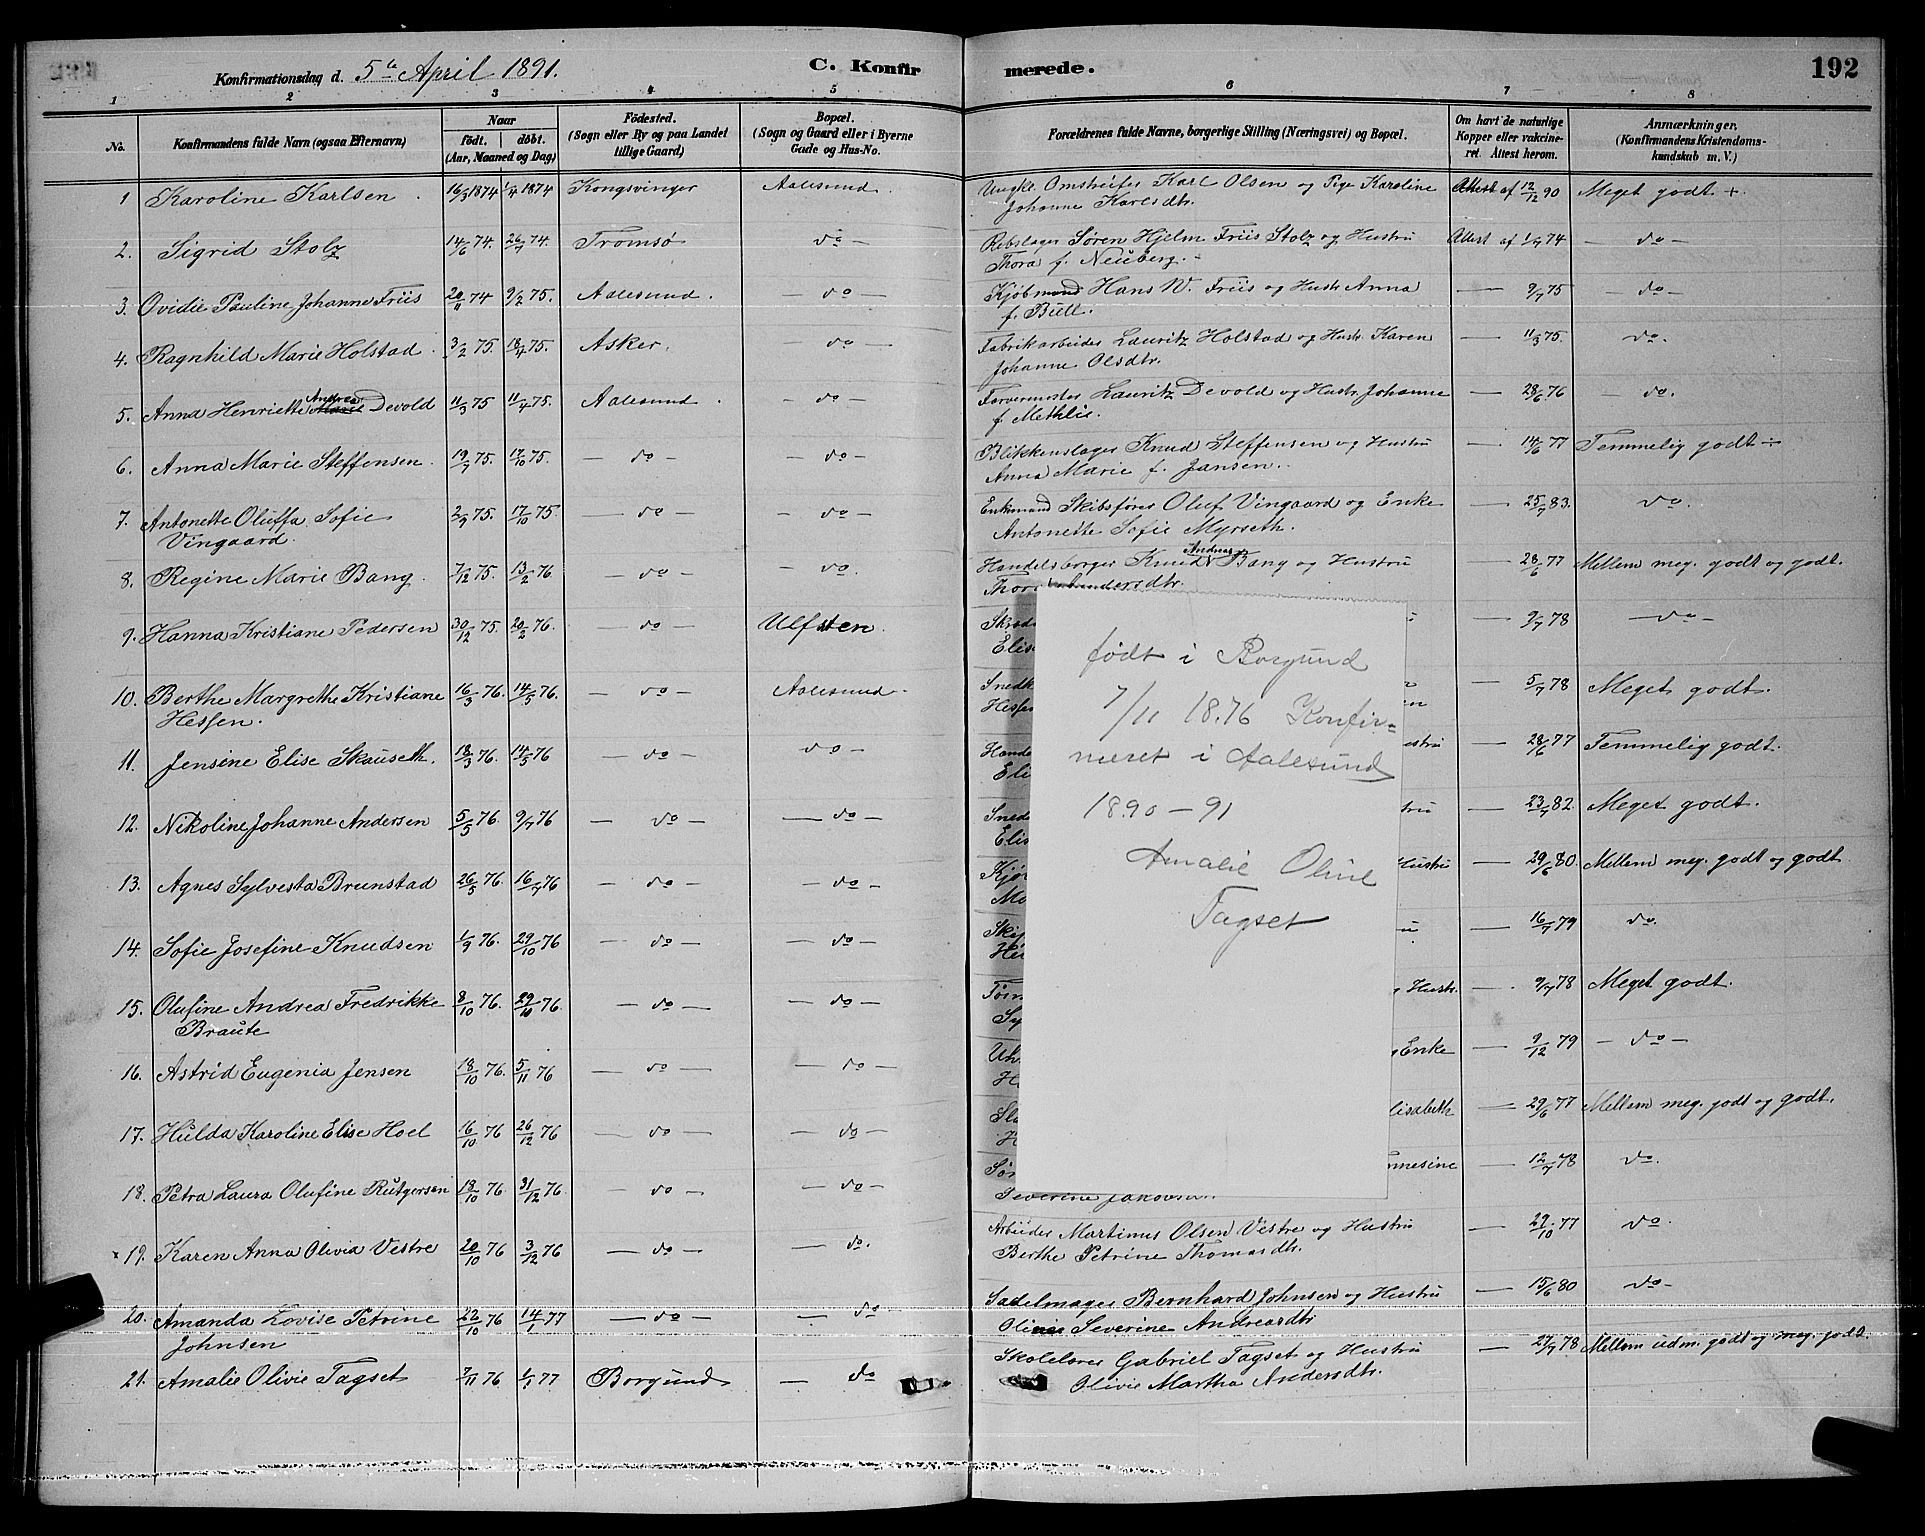 Konfirmationsdag d. 5te April 1891. C. Konfirmerede. 192
1 2 3 4 5 6 7 8
No. Konfirmandens fulde Navn (ogsaa Efternavn) Naar født. døbt. (Aar, Maaned og Dag) Fødested. (Sogn eller By og paa Landet tillige Gaard) Bopæl. (Sogn og Gaard eller i Byerne Gade og Hus-No. Forældrenes fulde Navne, borgerlige Stilling (Næringsvei) og Bopæl. Om havt de naturlige Kopper eller vakcineret. Attest herom. Anmærkninger. (Konfirmandens Kristendomskundskab m. V.)
1 Karoline Karlsen 16/3 1874 1/4 1874 Kongsvinger Aalesund. Ungkr. Omstreifer Karl Olsen og Pige Karoline Attest af 12/12 90 Meget godt +.
Johanne Karlsdtr.
2. Sigrid Stolz 14/6 74. 26/7 74. Tromsø do - Rebslager Søren Hjelm Friis Stolz og Hustru Attest af 74 - do -
Thora f. Neuberg.
3. Ovidie Pauline Johanne Friis 20/11 74 9/2 75. Aalesund. - do - Kjøbmand Hans W. Friis og Hustr. Anna - 9/7 75 - do -
f. Bull.
4. Ragnhild Marie Holstad 3/2 75. 18/4 75. Asker. - do - Fabrikarbeider Lauritz Holstad og Hustr. Karen - 11/3 75. do.
Johanne Olsdtr.
5. Anna Henriette Andrea Devold 11/3 75 11/4 75. Aalesund. - do - Farvermester Lauritz Devold og Hustr. Johanne - 28/6 76 - do.
f. Methlie.
6. Anna Marie Steffensen. 19/7 75. 17/10 75. - do - - do - Blikkenslager Knud Steffensen og Hustru - 14/6 77 Temmelig godt ÷
Anna Marie f. Jansen.
7. Antonette Oluffa Sofie 2/9 75. 17/10 75. - do - - do - Enkmand Skibsfører Oluf Vingaard og Enke - 25/7 83. do.
Vingaard. Antonette Sofie Myrseth.
8. Regine Marie Bang. 7/12 75. 13/2 76 - do - - do. Handelsborger Knud Andreas Bang og Hustru - 28/6 77 Mellem meg. godt og godt.
9. Hanna Kristiane Pedersen 30/12 75. 20/2 76. - do - Ulfsten. - 9/7 78 - do -
Elis
10. Berthe Margrethe Kristiane 16/3 76. 14/5 76. - do - Aalesund. Snedk - 5/7 78 Meget godt.
Hessen. Hessen
11. Jensine Elise Skauseth. 18/3 76. 14/5 76 - do - do - Hande - 28/6 77 Temmelig godt.
Eli
12. Nikoline Johanne Andersen 5/5 76. 9/7 76 - do - - do - Sned - 23/7 82. Meget godt.
Elis
13. Agnes Sylvesta Brunstad 26/5 76. 16/7 76 - do - - do - Kjør Hustru - 29/6 80 Mellem meg. godt og godt
Ma
14. Sofie Josefine Knudsen 1/9 76. 29/10 76 - do - - do - Ski - 16/7 79 do.
15. Olufine Andrea Fredrikke 8/10 76. 29/10 76. - do - - do - Tøm Hustr. - 9/7 78 Meget godt.
Braute Sy
16. Astrid Eugenia Jensen 18/10 76. 5/11 76 - do - - do - Uh Enke - 9/12 79 - do -
17. Hulda Karoline Elise Hoel 16/10 76 26/12 76 - do - - do - lisabeth - 29/6 77 Mellem meg. godt og godt.
18. Petra Laura Olufine Rutgersen 18/10 76 31/12 76. - do - - do - nesine - 12/7 78 do.
Severine
19. Karen Anna Olivia Vestre 20/10 76 3/12 76 - do - - do. Arbeider Martinus Olsen Vestre og Hustru - 29/10 77 do.
Berthe Petrine Thomasdtr.
20. Amanda Lovise Petrine 22/10 76 14/1 77 - do - - do - Sadelmager Bernhard Johnsen og Hustru - 15/6 80 do -
Johnsen Severine Andreasdtr
21. Amalie Olivie Tagset 7/11 76 1/1 77 Borgund - do Skolelærer Gabriel Tagset og Hustru - 27/7 78 Mellem udm. godt og meg. godt.
Olivie Martha Andersdtr.
født i Borgund
7/11 1876 Konfir=
meret i Aalesund
1890-91
Amalie Oline
Tagset